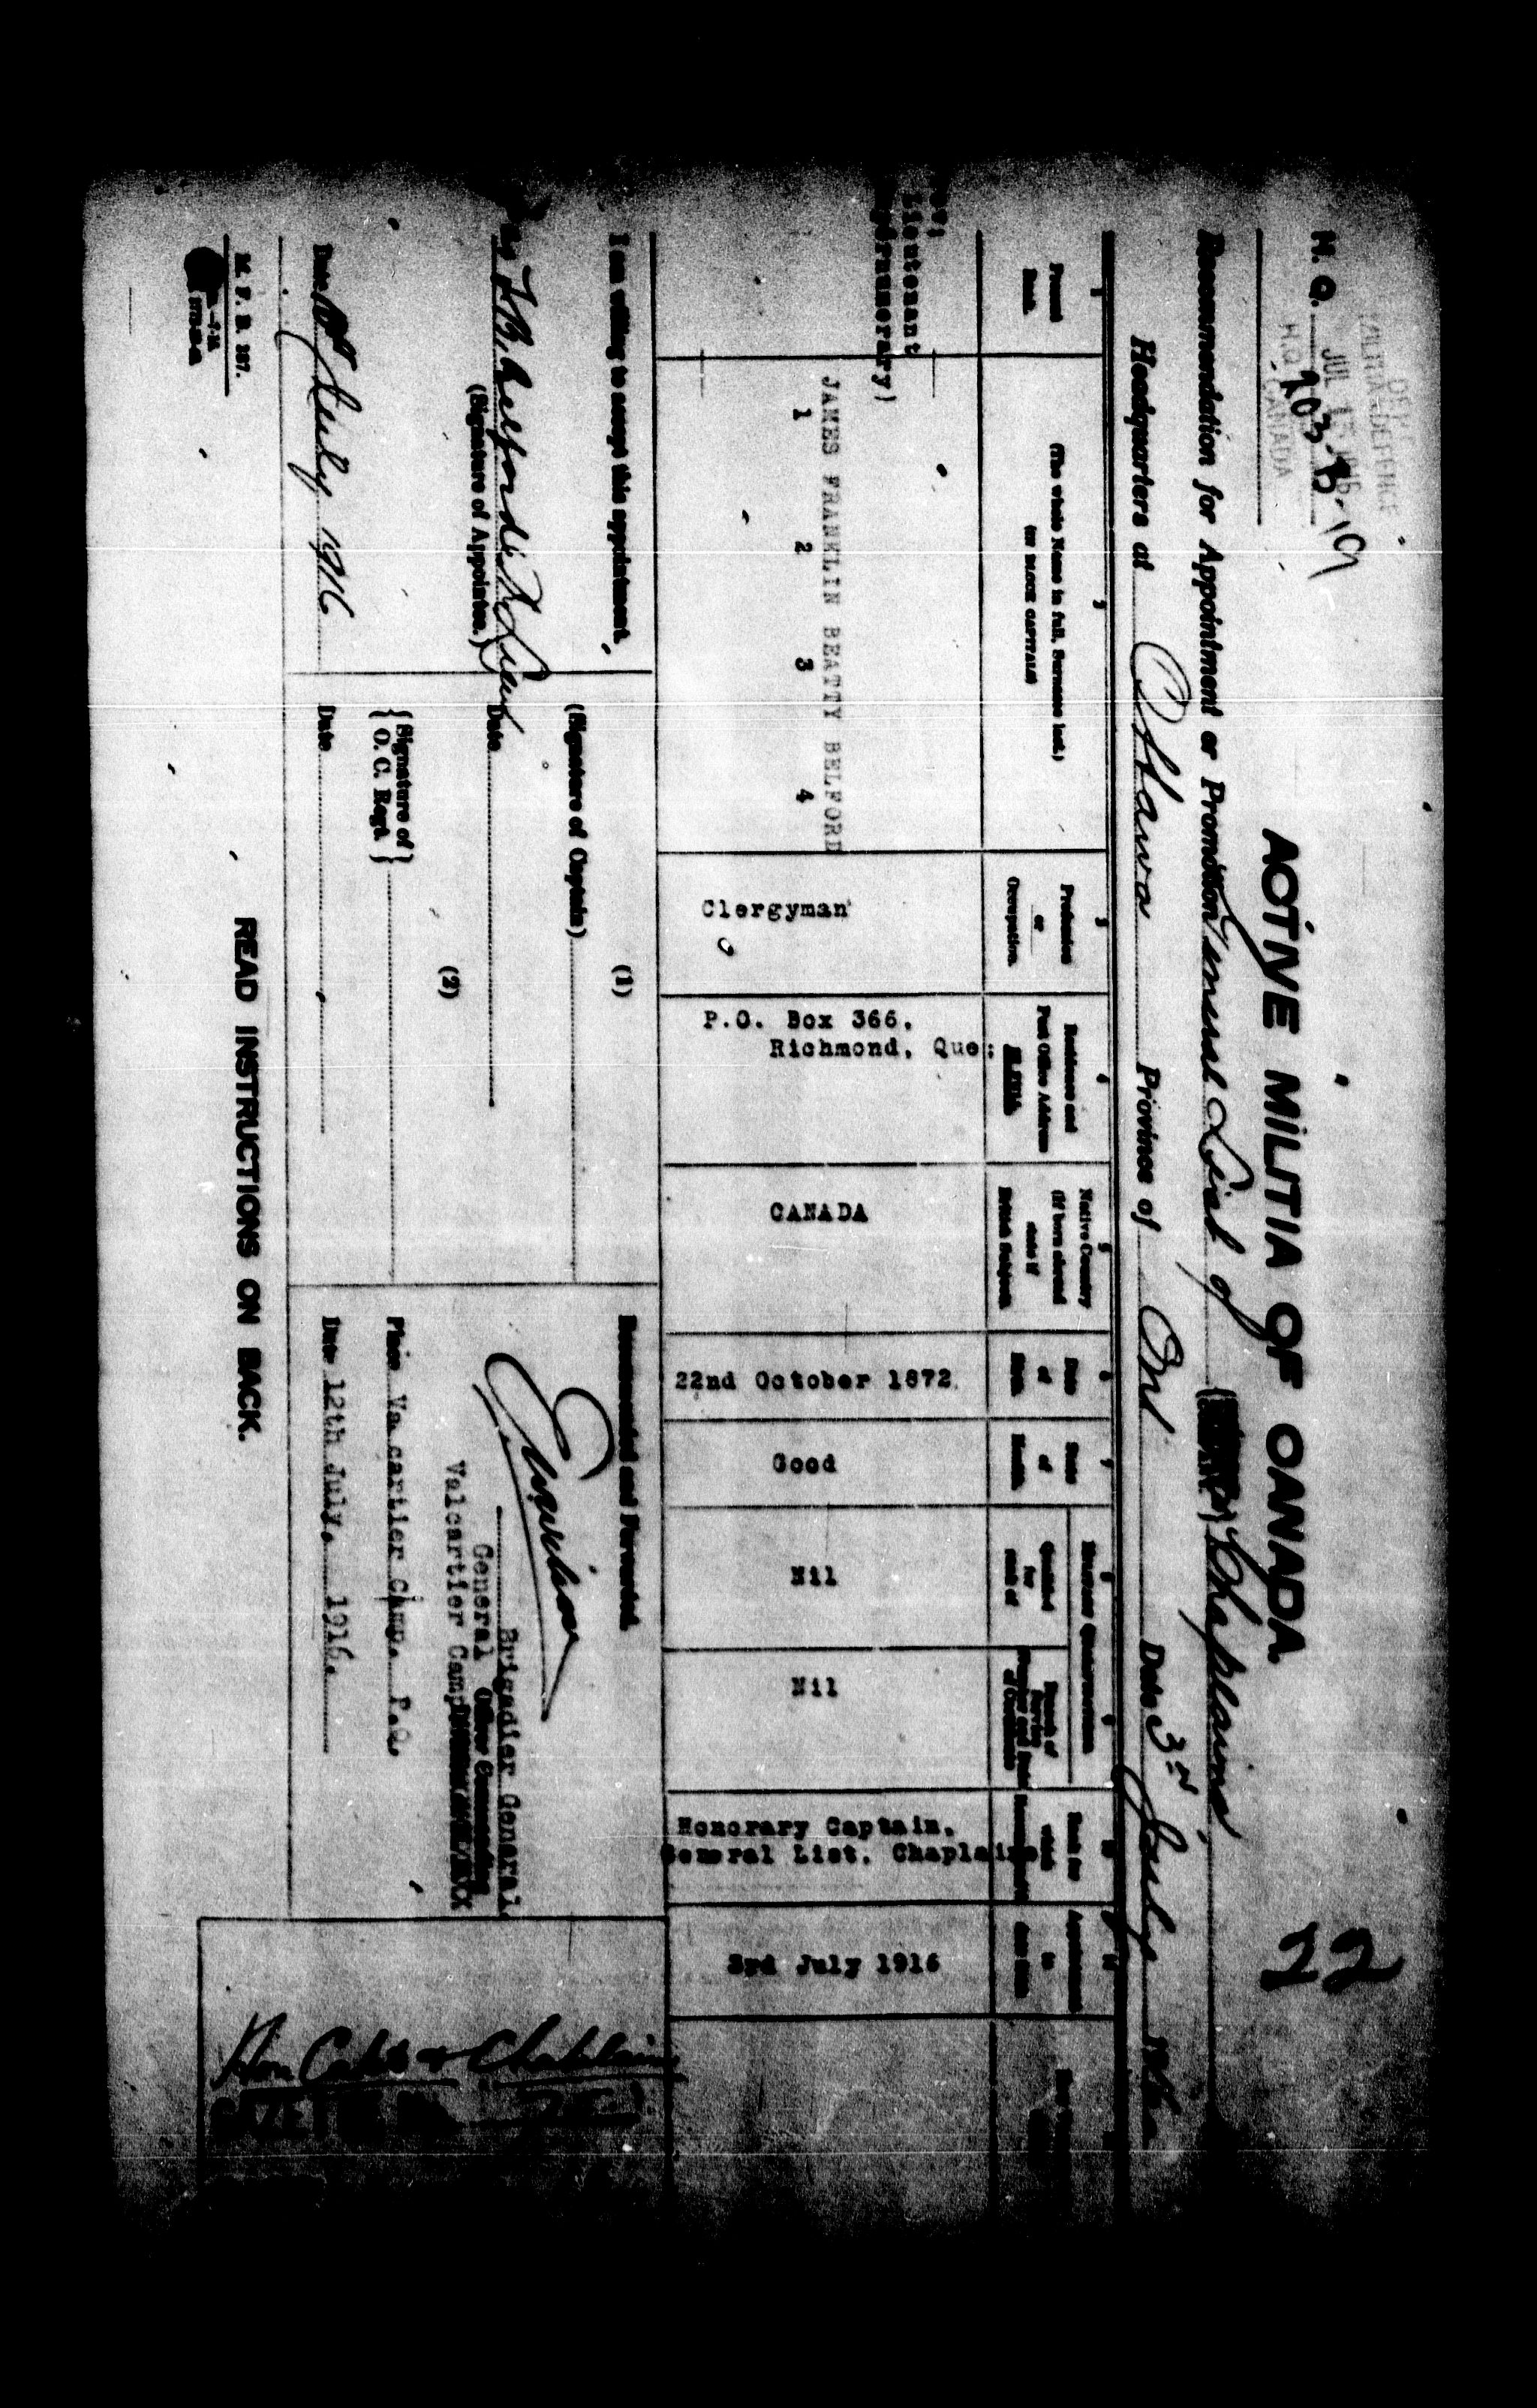 DEPT
MILITIA & DEFENCE
JUL 15 1916
H.Q. CANADA
H. Q. 203-B-19
22
ACTIVE MILITIA OF CANADA.
Recommendation for Appointment or Promotion General List of Chaplains
Headquarters at Ottawa Province of Ont Date 3rd July 1916
1
Present Rank.
2
(The whole Name in full. Surname last.)
(IN BLOCK CAPITALS)
3
Profession or Occupation.
4
Residence and Post Office Address in full.
5
Native Country (if born abroad state if British Subject)
6
Date of Birth
7
State of Health.
8
Qualified for rank of
Rank for which
Appointment to date from
Lieutenant
(Supernumerary)
JAMES FRANKLIN BEATTY BELFORD
1 2 3 4
Clergyman
P.O. Box 366,
Richmond, Que:
CANADA
22nd October 1872.
Good
Nil
Nil
Honorary Captain,
General List, Chaplains
3rd July 1916
I am willing to accept this appointment.
(Signature of Appointee.)
Date July 1916
(1)
(Signature of Captain)
Date
(2)
{Signature of O. C. Regt.}
Date
Recommended and Forwarded.
Brigadier General,
General Officer Commanding
Valcartier Camp
Place Valcartier Camp. P.Q.
Date 12th July. 1916.
Hon Capt & Chaplain
GAZETTE
M. F. B. 287.
READ INSTRUCTIONS ON BACK.